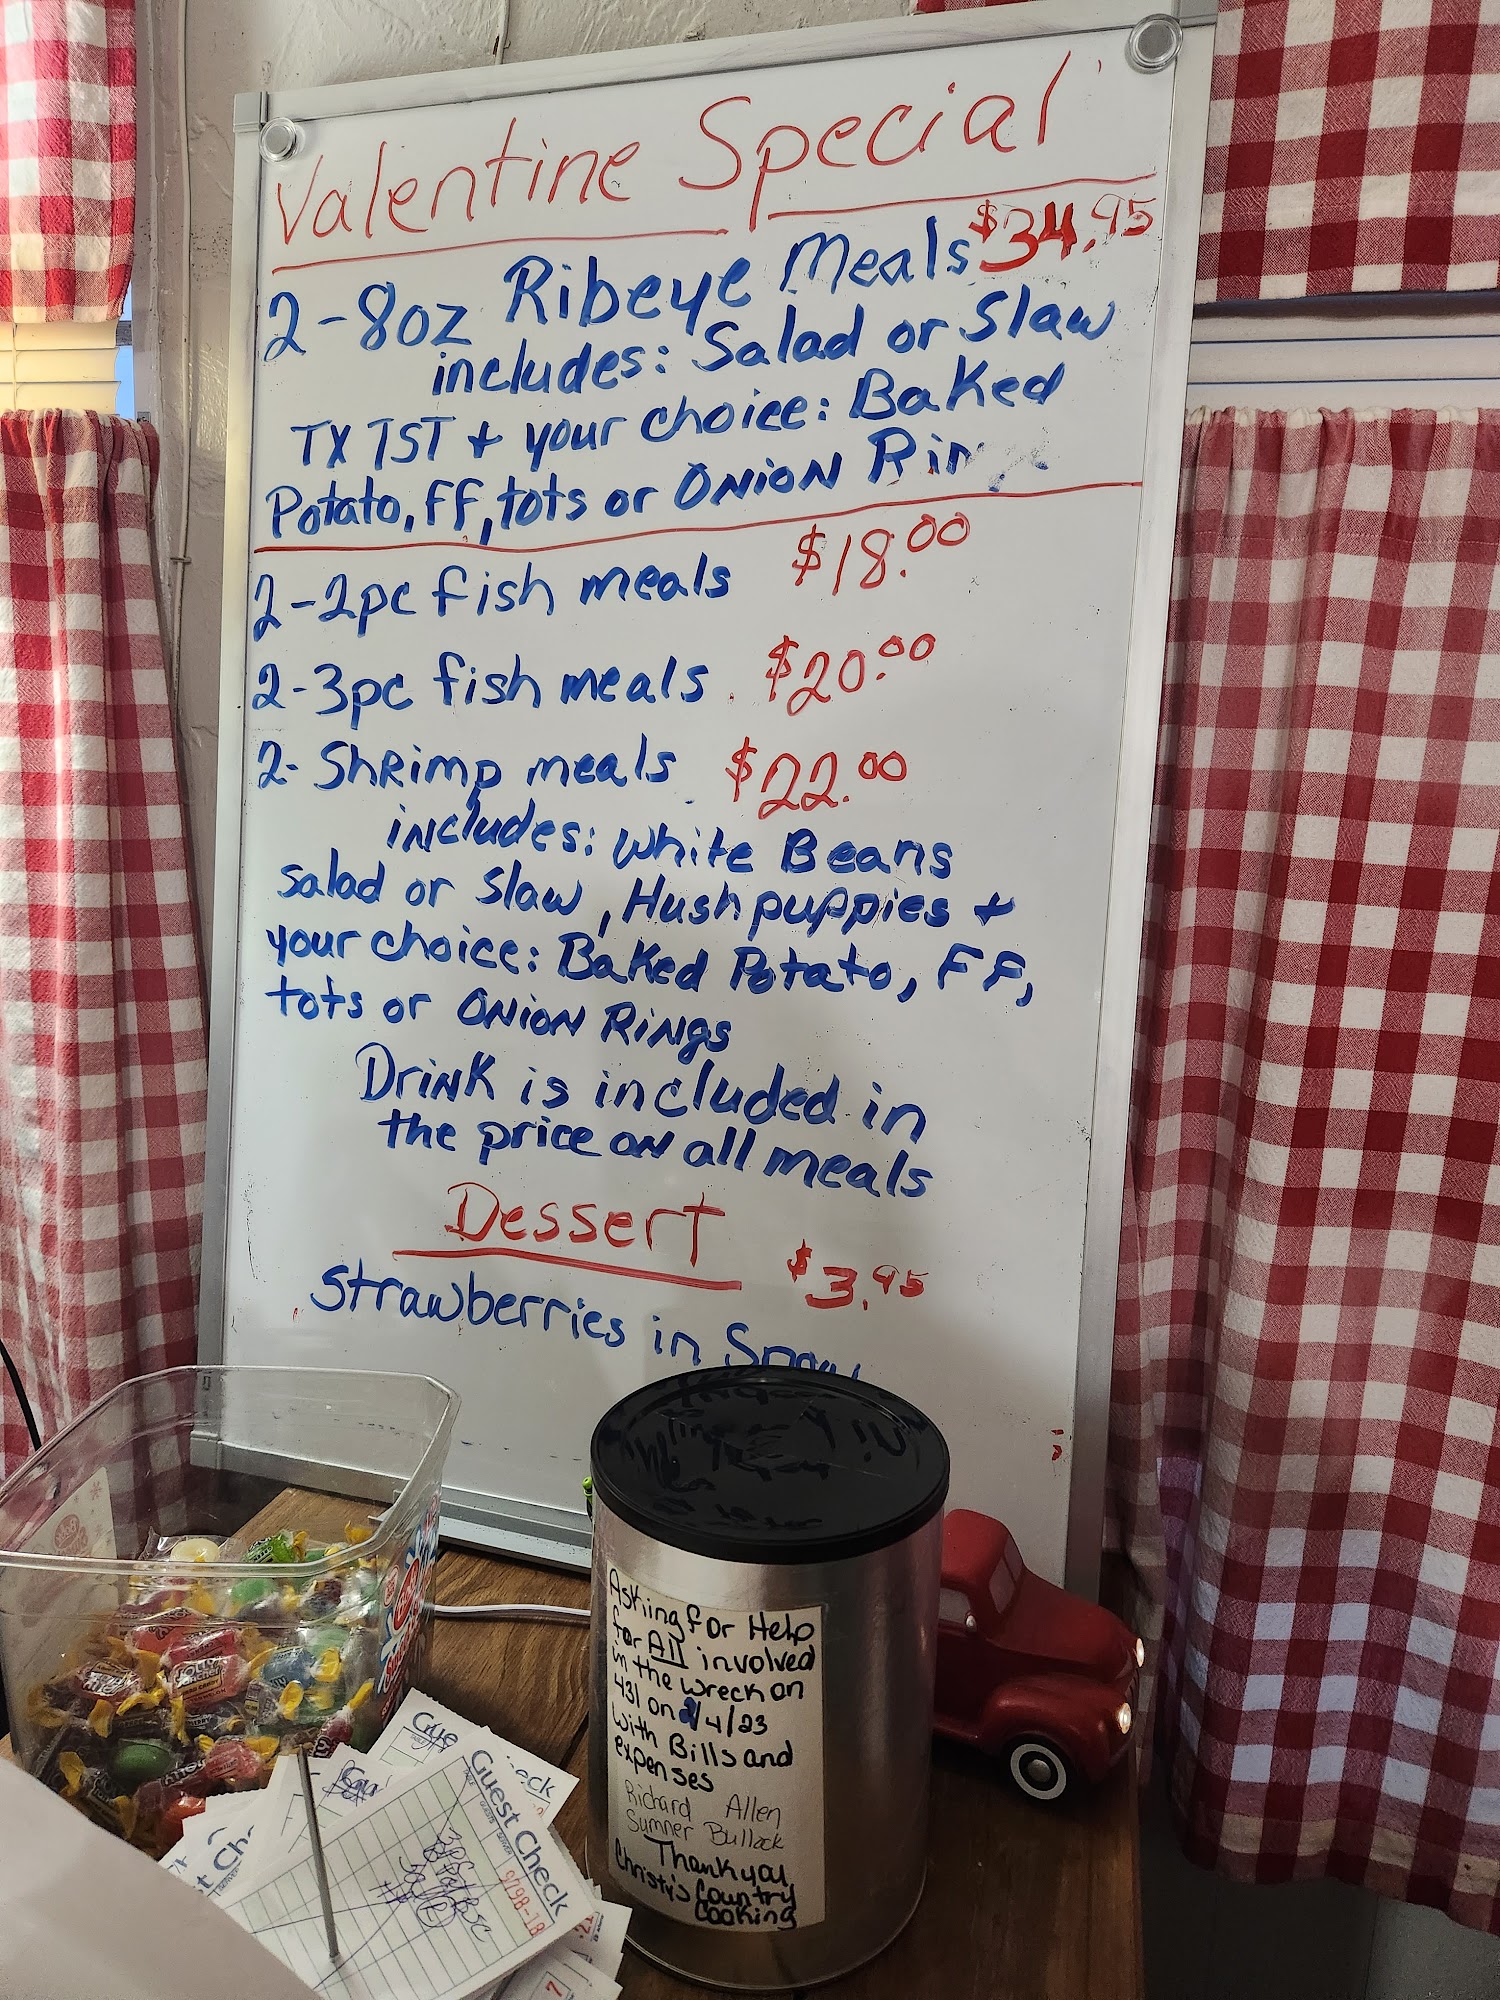 Valentine Special
$34.95
2-8oz Ribeye Meals
includes: Salad or Slaw
TX TST + your choice: Baked
Potato, FF, tots or Onion Rin
2-2pc fish meals $18.00
2-3pc fish meals $20.00
2- Shrimp meals $22.00
includes: White Beans
Salad or Slaw, Hushpuppies +
your choice: Baked Potato, FF,
tots or Onion Rings
Drink is included in
the price on all meals
Dessert
$3.95
Strawberries in Snow
Asking for Help
for All involved
in the wreck on
431 on 2/4/23
with Bills and
expenses
Richard Allen
Sumner Bullock
Thank you,
Christy's Country
Cooking
Guest Check